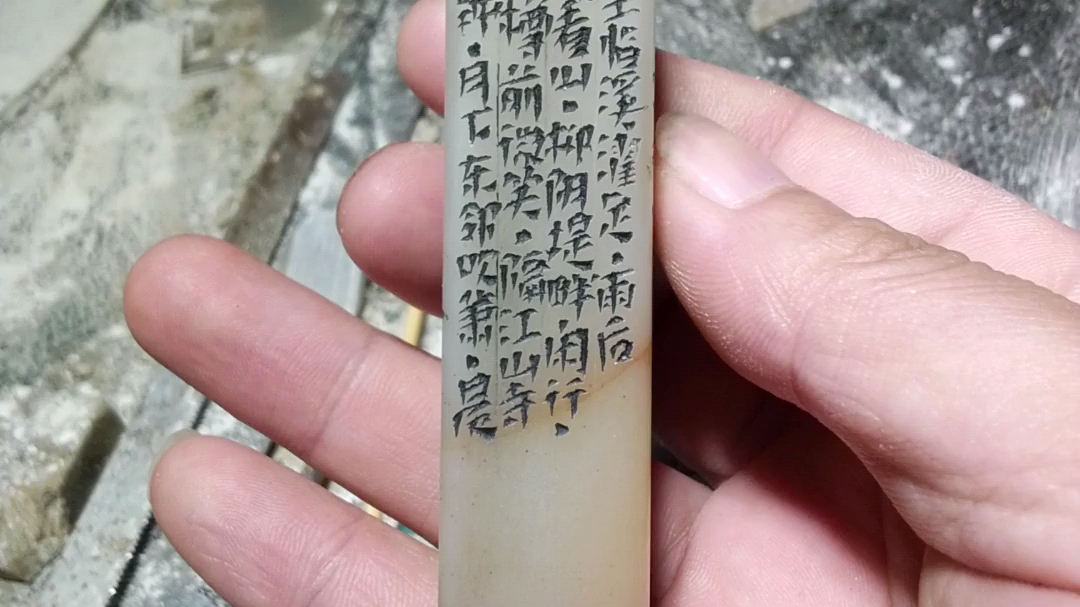 至临溪濯足·雨后
看山·柳阴堤畔闲行·
樽前微笑·隔江山寺
·月下东邻吹箫·晨